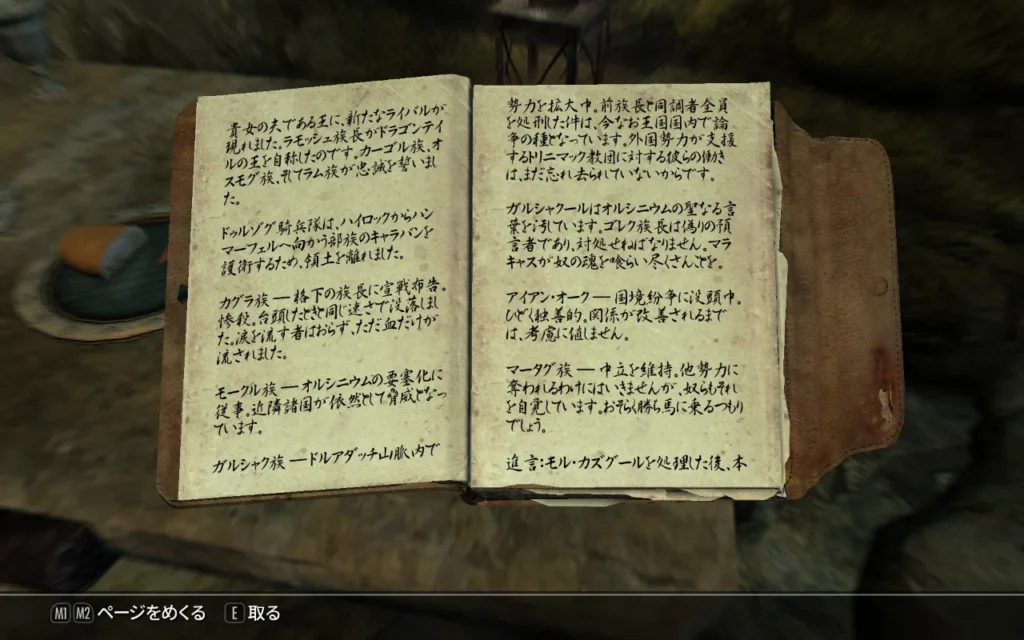 貴女の夫である王に、新たなライバルが
現れました。ラモッシュ族長がドラゴンテイ
ルの王を自称したのです。カーゴル族、オ
スモグ族、そしてラム族が忠誠を誓いまし
た。
ドゥルゾグ騎兵隊は、ハイロックからハン
マーフェルへ向かう部族のキャラバンを
護衛するため、領土を離れました。
カグラ族 ― 格下の族長に宣戦布告。
惨殺。台頭したときと同じ速さで没落しまし
た。涙を流す者はおらず、ただ血だけが
流されました。
モークル族 ― オルシニウムの要塞化に
従事。近隣諸国が依然として脅威となっ
ています。
ガルシャク族 ― ドルアダッチ山脈内で
勢力を拡大中。前族長と同調者全員
を処刑した件は、今なお王国国内で論
争の種となっています。外国勢力が支援
するトリニマック教団に対する彼らの働き
は、まだ忘れ去られていないからです。
ガルシャクールはオルシニウムの聖なる言
葉を汚しています。ゴレク族長は偽りの預
言者であり、対処せねばなりません。マラ
キャスが奴の魂を喰らい尽くさんことを。
アイアン・オーク ― 国境紛争に没頭中。
ひどく独善的。関係が改善されるまで
は、考慮に値しません。
マータグ族 ― 中立を維持。他勢力に
奪われるわけにはいきませんが、奴らもそれ
を自覚しています。おそらく勝ち馬に乗るつもり
でしょう。
進言：モル・カズグールを処理した後、本
M1 M2 ページをめくる E 取る